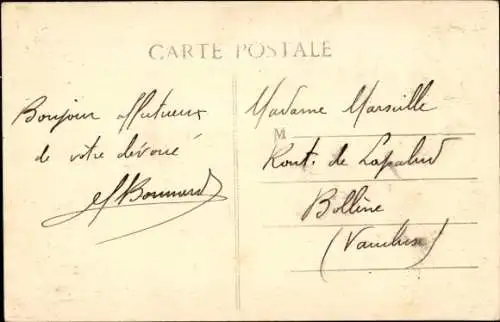 CARTE POSTALE
Bonjour affectueux
de votre dévoué
Bonnard
Madame Marseille
M
Rout. de Lapalud
Bollène
(Vaucluse)